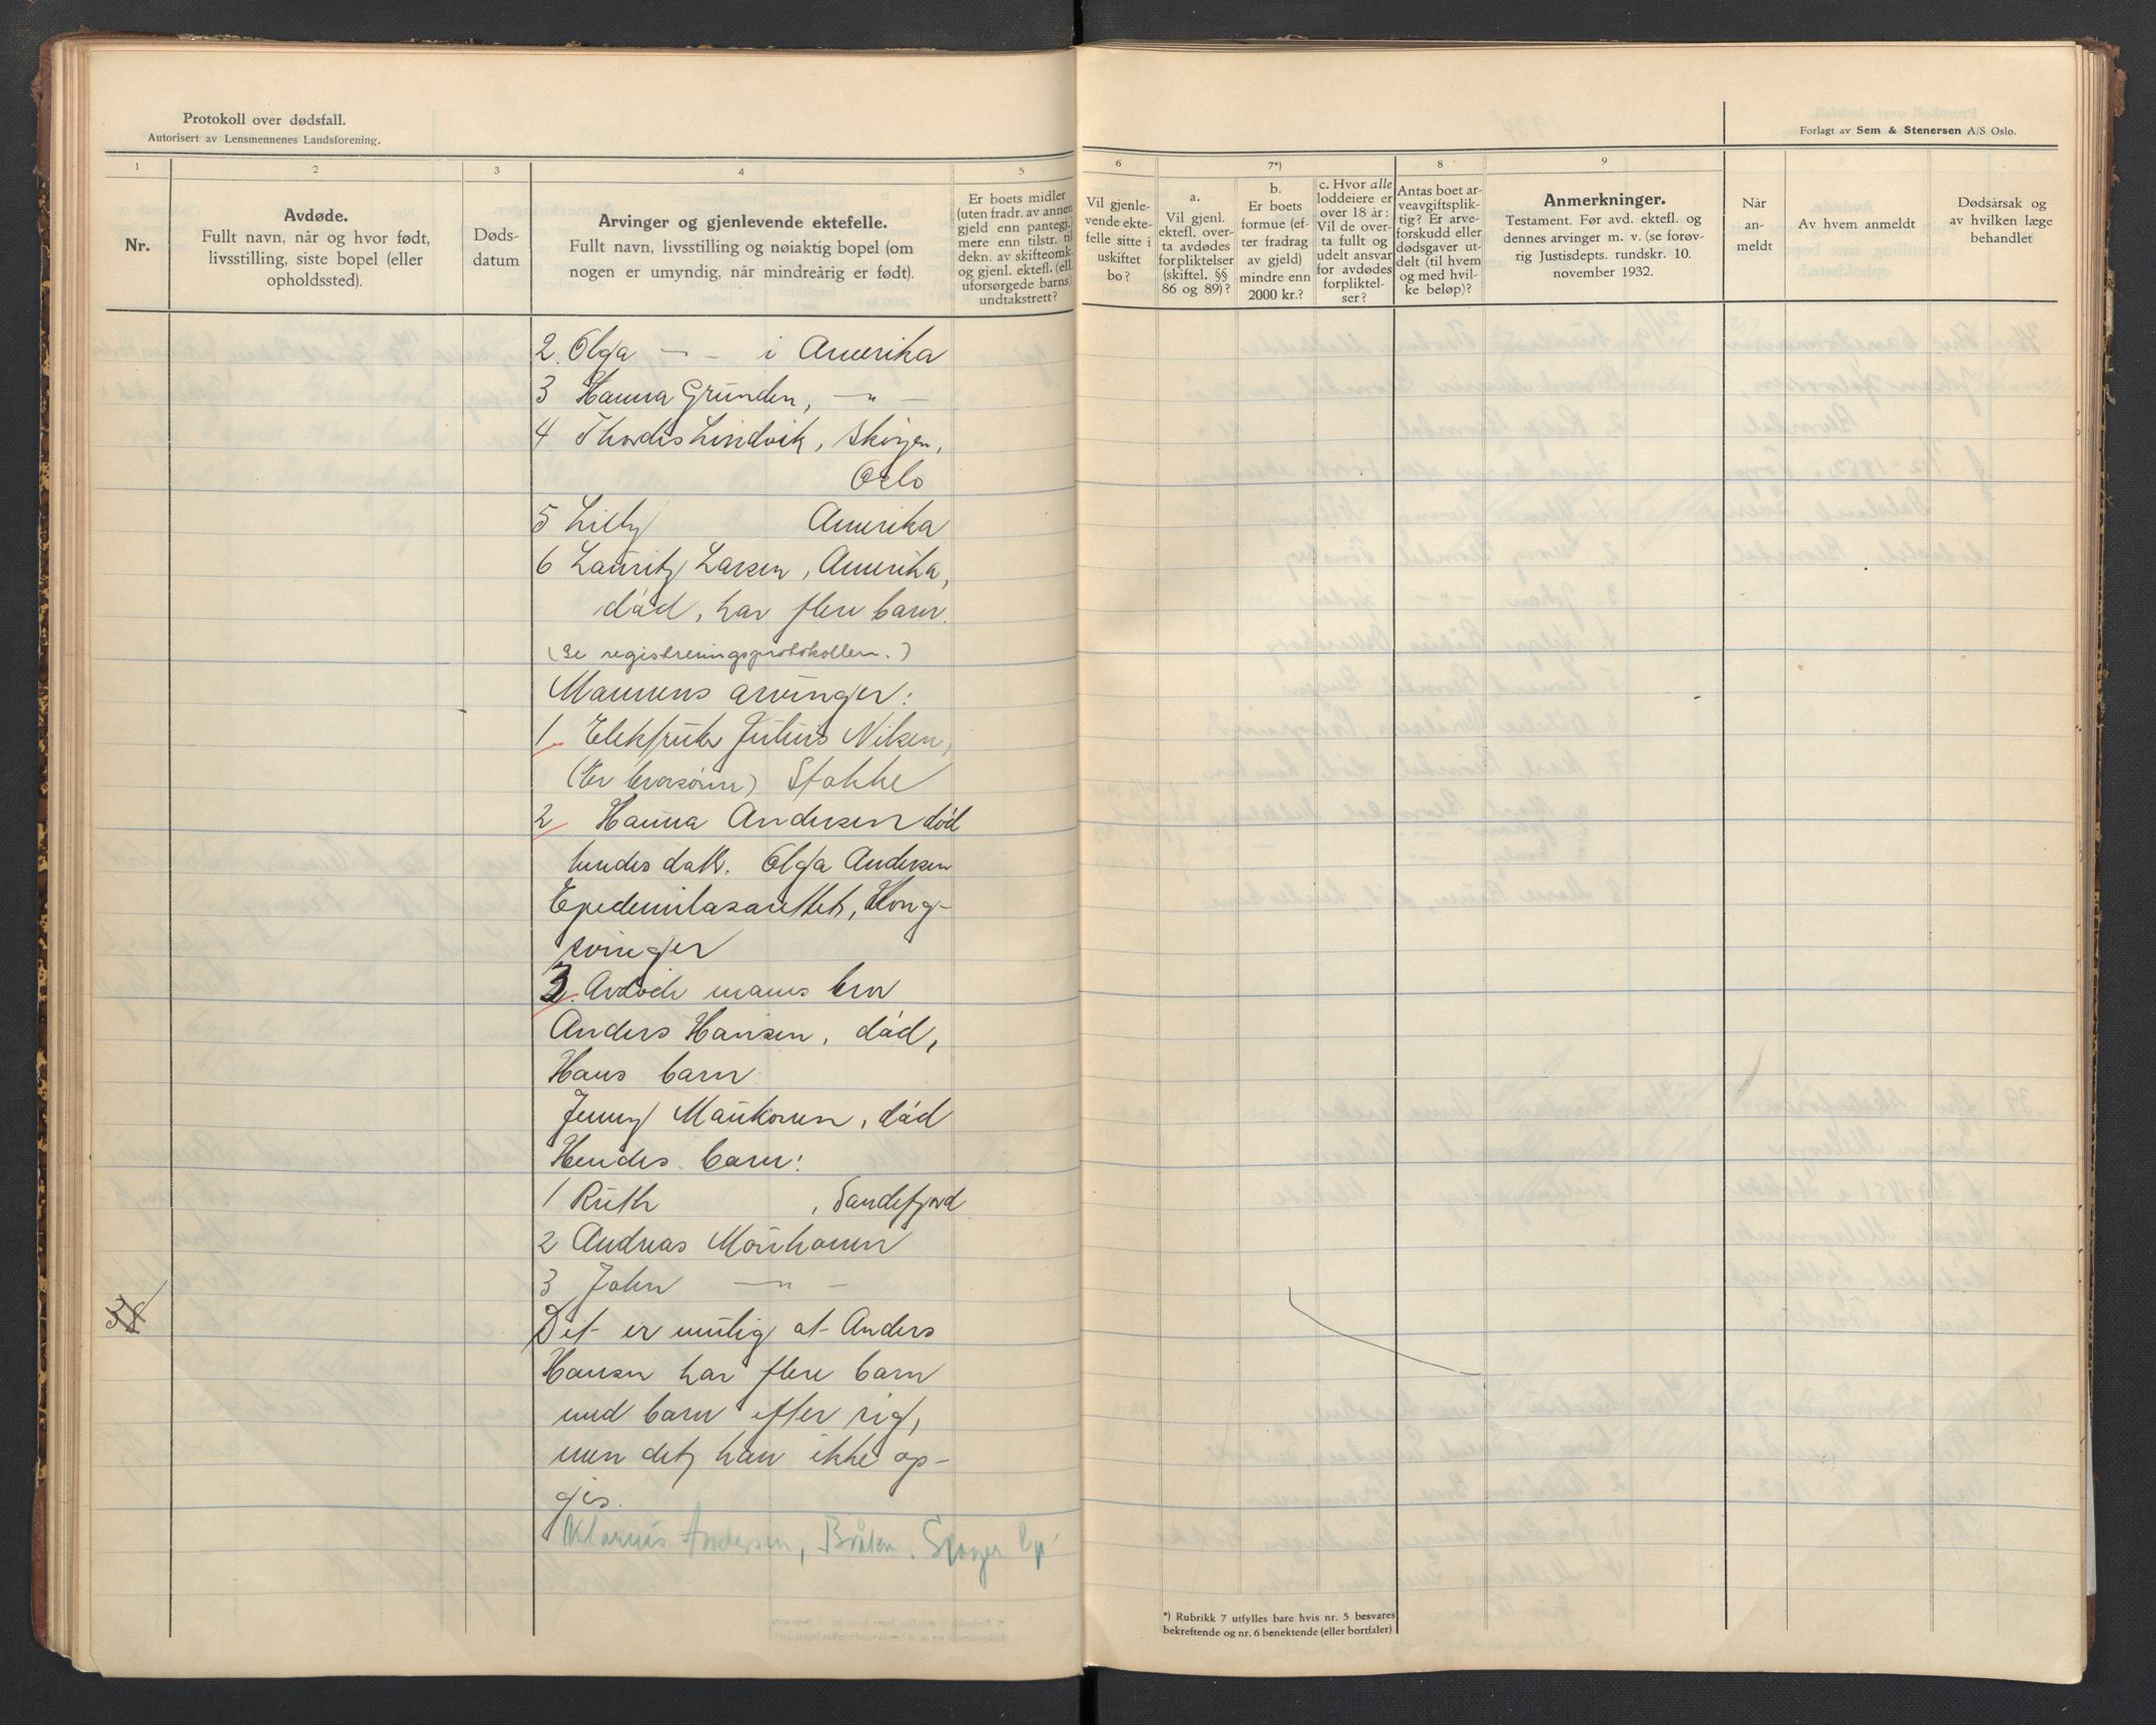 Protokoll over dødsfall.
Autorisert av Lensmennenes Landsforening.
1
2
3
4
5
Nr.
Avdøde.
Fullt navn, når og hvor født,
livsstilling, siste bopel (eller
opholdssted).
Døds-
datum
Arvinger og gjenlevende ektefelle.
Fullt navn, livsstilling og nøiaktig bopel (om
nogen er umyndig, når mindreårig er født).
Er boets midler
(uten fradr. av annen
gjeld enn pantegj.)
mere enn tilstr. til
dekn. av skifteomk.
og gjenl. ektef. (ell.
uforsørgede barns)
undtakstrett?
2. Olga — - i Amerika
3 Hanna Grunden, — " —
4 Thordis Lindvik, Skøyen,
Oslo
5 Lilly Amerika
6 Lauritz Larsen, Amerika,
död, har flere barn.
(Se registreringsprotokollen.)
Mannens arvinger:
1. Julius Nilsen,
(Er brorsönn) Stokke
2 Hanna Andersen död
hendes datt. Olga Andersen
Epedemilasarettet, Kong-
svinger
3. Avdöde manns bror
Anders Hansen, död,
Hans barn
Jenny Maukonen, död
Hendes barn:
1 Ruth , Sandefjord
2 Andreas
3 John — " —
38
Det er mulig at Anders
Hansen har flere barn
med barn efter sig,
men det kan ikke op-
gis.
Klarus Andersen, Bråten.
Forlagt av Sem & Stenersen A/S Oslo.
6
7*)
8
9
Vil gjenle-
vende ekte-
felle sitte i
uskiftet
bo?
a.
Vil gjenl.
ektefl. over-
ta avdødes
forpliktelser
(skiftel. §§
86 og 89)?
b.
Er boets
formue (ef-
ter fradrag
av gjeld)
mindre enn
2000 kr.?
c. Hvor alle
loddeiere er
over 18 år:
Vil de over-
ta fullt og
udelt ansvar
for avdødes
forpliktel-
ser?
Antas boet ar-
veavgiftsplik-
tig? Er arve-
forskudd eller
dødsgaver ut-
delt (til hvem
og med hvil-
ke beløp)?
Anmerkninger.
Testament. Før avd. ektefl. og
dennes arvinger m. v. (se forøv-
rig Justisdepts. rundskr. 10.
november 1932.
Når
an-
meldt
Av hvem anmeldt
Dødsårsak og
av hvilken læge
behandlet
*) Rubrikk 7 utfylles bare hvis nr. 5 besvares
bekreftende og nr. 6 benektende (eller bortfaler)